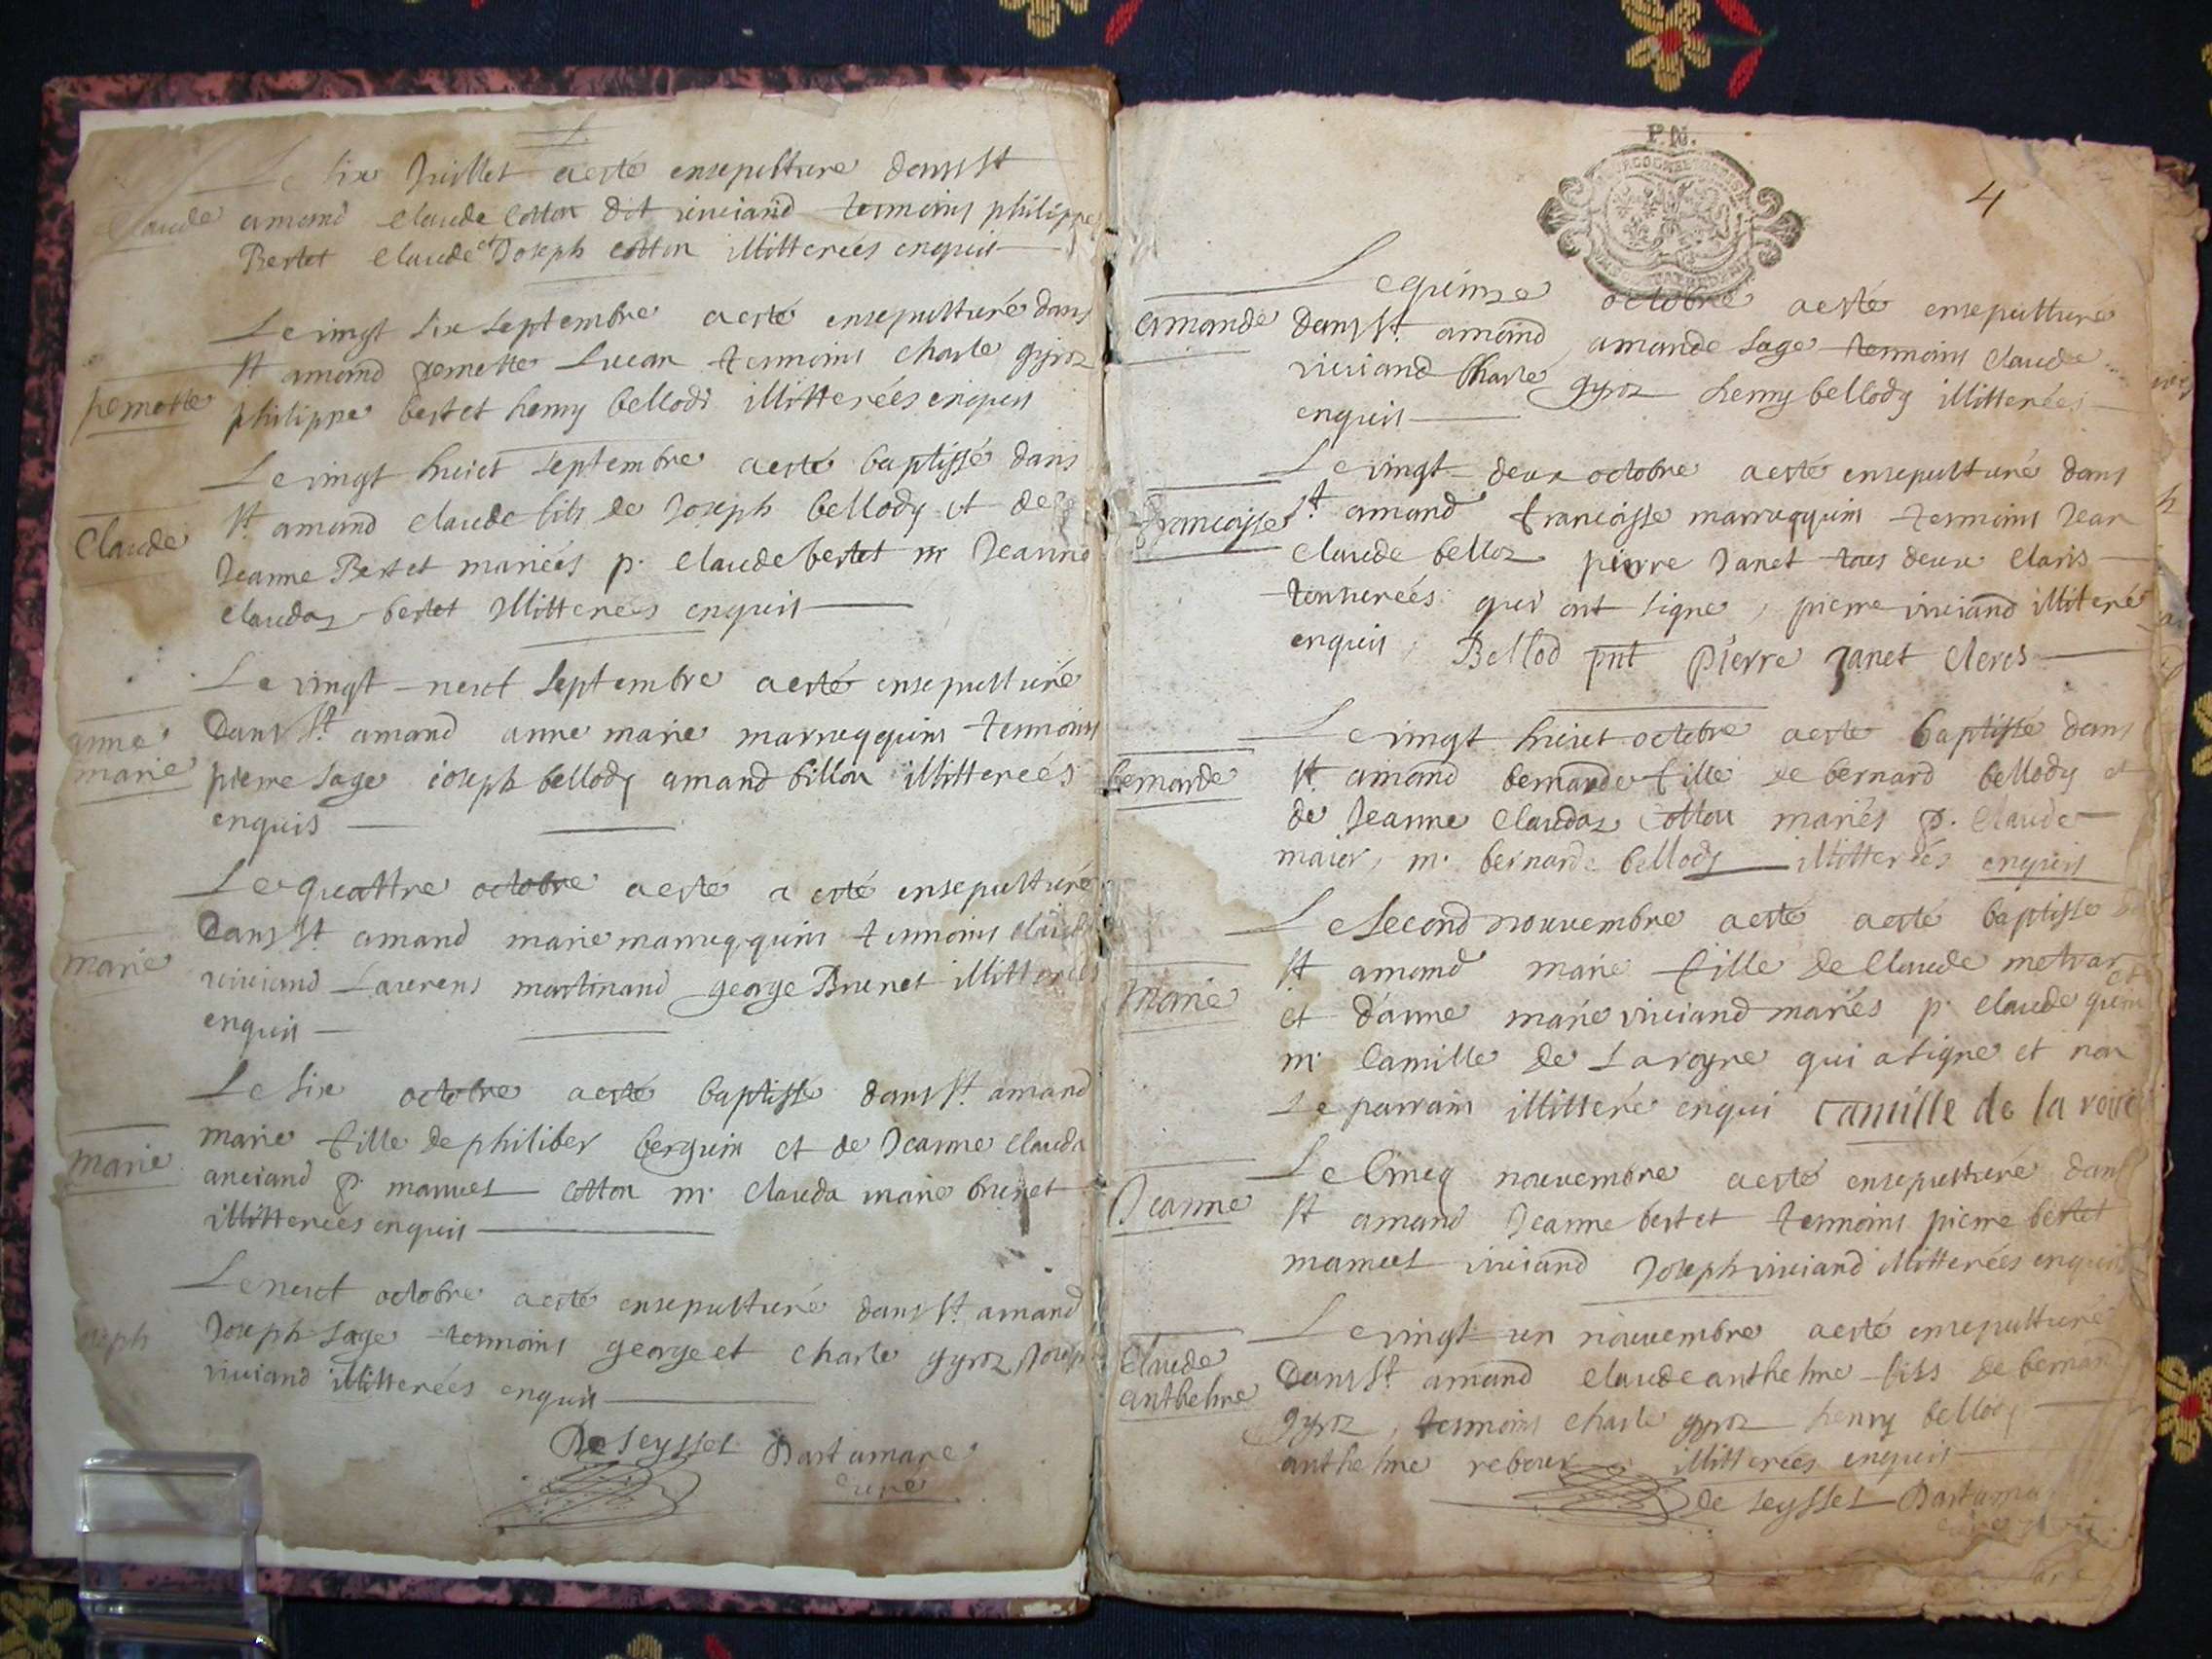 Le six Juillet a esté ensepulturé dans St
Claude
amand Claude Cotton dit viviand tesmoins philippe
Bertet Claude et Joseph cotton illitterés enquis
Le vingt six septembre a esté ensepulturé dans
St amand pernette Lucan tesmoins charle gyroz
pernette
philippe bertet henry bellodi illitterées enquis
Le vingt huict septembre a esté baptissé dans
St amand claude fils de Joseph bellody et de
Claude
Jeanne Bertet mariées p. claude bertet m Jeanne
claudaz bertet illitterées enquis
Le vingt neuf septembre a esté ensepulturé
Dans St. amand anne marie marruqquin tesmoins
anne
marie
pierre sage ioseph bellody amand billon illitterées
enquis
Le quattre octobre a esté a esté ensepulturé
Dans St amand marie marruqquin tesmoins claude
marie
viviand Laurens martinand george Brunet illitterées
enquis
Le six octobre a esté baptissé dans St. amand
marie fille de philiber berguin et de Jeanne clauda
marie
anciand p. manuel cotton m. clauda marie brunet
illitterées enquis
Le neuf octobre a esté ensepulturé dans St. amand
Joseph sage tesmoins george et charle gyroz Joseph
oseph
viviand illitterées enquis
De Seyssel Dartamare
curé
P.N.
4
Le quinze octobre a esté ensepulturé
amande
dans St. amand amande sage tesmoins claude
viviand charle gyroz henry bellody illitterées
enquis
Le vingt deux octobre a esté ensepulturé dans
francoisse
St amand francoisse marruqquin tesmoins Jean
Claude belloz pierre Janet tous deux clercs
tonsurées qui ont signe, pierre viviand illiteré
enquis, Bellod pnt pierre Janet clercs
Le vingt huict octobre a esté baptissé dans
bernarde
St. amand bernarde fille de bernard bellody et
de Jeanne claudaz cotton mariés p. claude
maior, m. bernarde bellody illitterées enquis
Le second nouvembre a esté a esté baptisse
St amand marie fille de Claude metrar
marie
et d'anne marie viviand mariés p. claude
m. Camille de Lavoyre qui a signe et non
Le parrain illitteré enqui camille de la voire
Le Cincq nouvembre a esté ensepulturé dans
Jeanne
St amand Jeanne bertet tesmoins pierre bertet
manuel viviand Joseph viviand illitterées enquis
Le vingt un nouvembre a esté ensepulturé
Claude
anthelme
Dans St. amand claude anthelme fils de bernard
gyroz, tesmoins charle gyroz henry bellody
anthelme reboux illitterées enquis
de seyssel Dartama